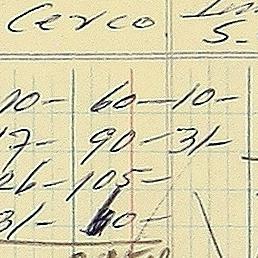 Cerco
S.
10- 60-10-
17- 90-31-
26-105-
31- 60-